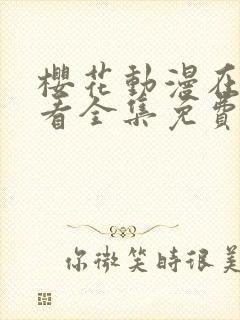 櫻花動漫在
看全集免費
你微笑時很美